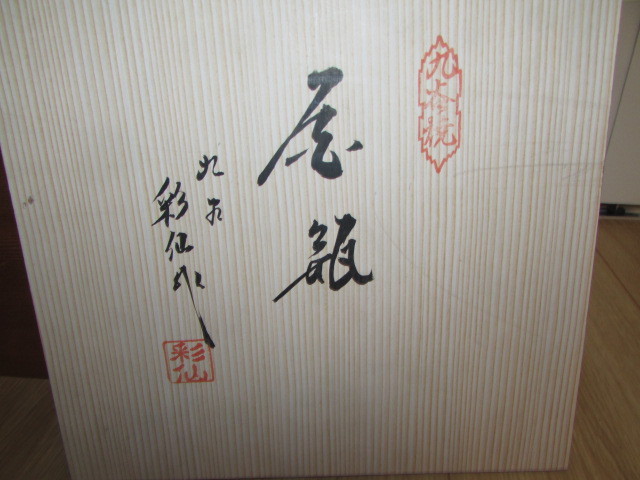 九谷焼
花瓶
九谷
彩仙作
彩仙